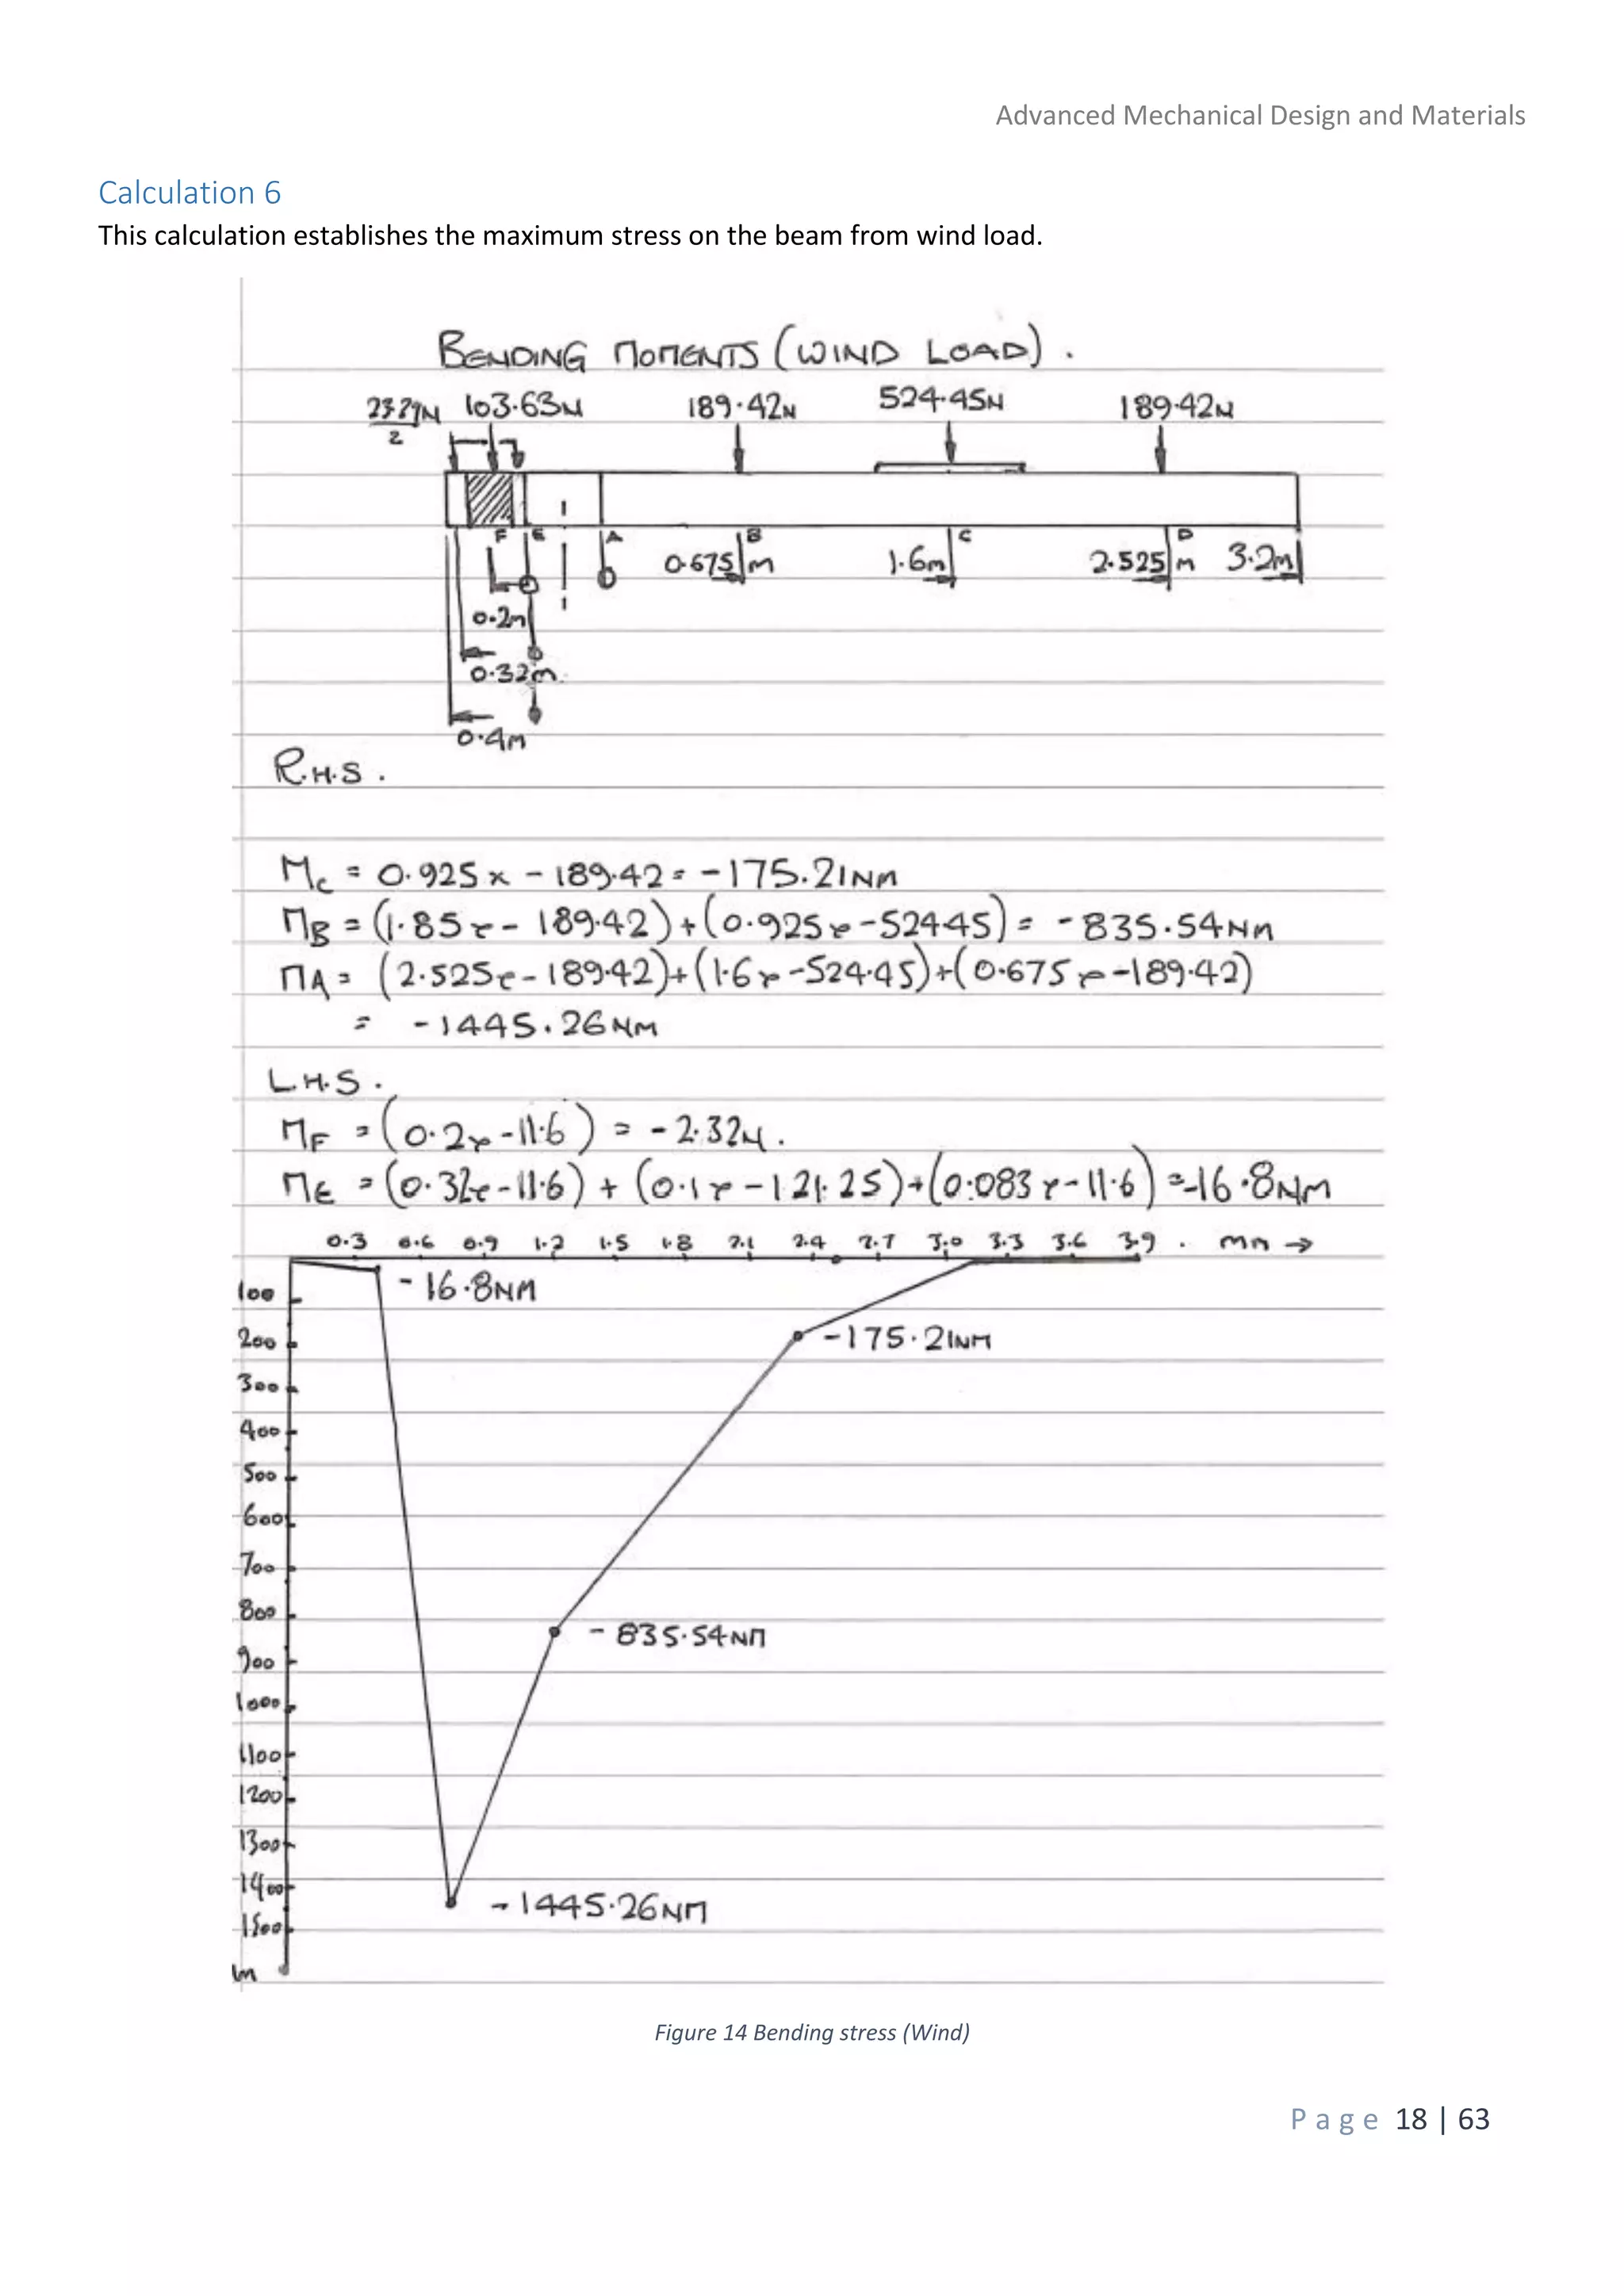 Advanced Mechanical Design and Materials
Calculation 6
This calculation establishes the maximum stress on the beam from wind load.
BENDING MOMENTS (WIND LOAD).
103.63N 189.42N 524.45N 189.42N
2
F E A B C D
0.675m 1.6m 2.525m 3.2m
0.2m
0.32m
0.4m
R.H.S.
Mc = 0.925 x - 189.42 = -175.21NM
MB = (1.85 x - 189.42) + (0.925 x -524.45) = -835.54NM
MA = (2.525 x - 189.42) + (1.6 x -524.45) + (0.675 x -189.42)
= -1445.26NM
L.H.S.
MF = (0.2 x -11.6) = -2.32N.
ME = (0.32 x -11.6) + (0.1 x - 121.25) + (0.083 x - 11.6) = -16.8NM
0.3 0.6 0.9 1.2 1.5 1.8 2.1 2.4 2.7 3.0 3.3 3.6 3.9 . →
-16.8NM
100
200 -175.21NM
300
400
500
600
700
800 -835.54NM
900
1000
1100
1200
1300
1400 -1445.26NM
1500
M
Figure 14 Bending stress (Wind)
Page 18 | 63